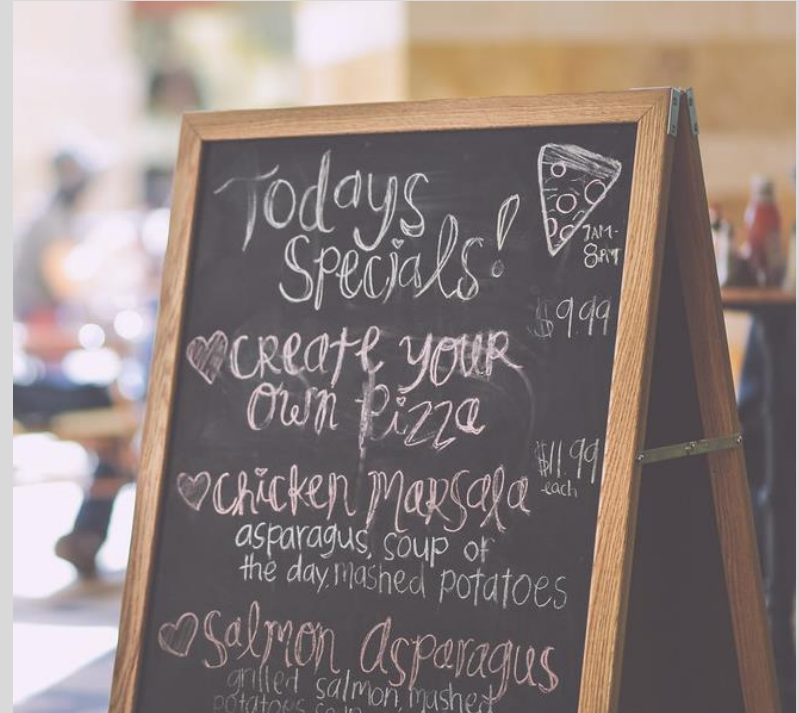 Todays
Specials!
7AM-
8PM
$9.99
create your
own Pizza
$11.99
each
chicken Marsala
asparagus, soup of
the day, mashed potatoes
Salmon Asparagus
grilled salmon, mashed
potatoes soup